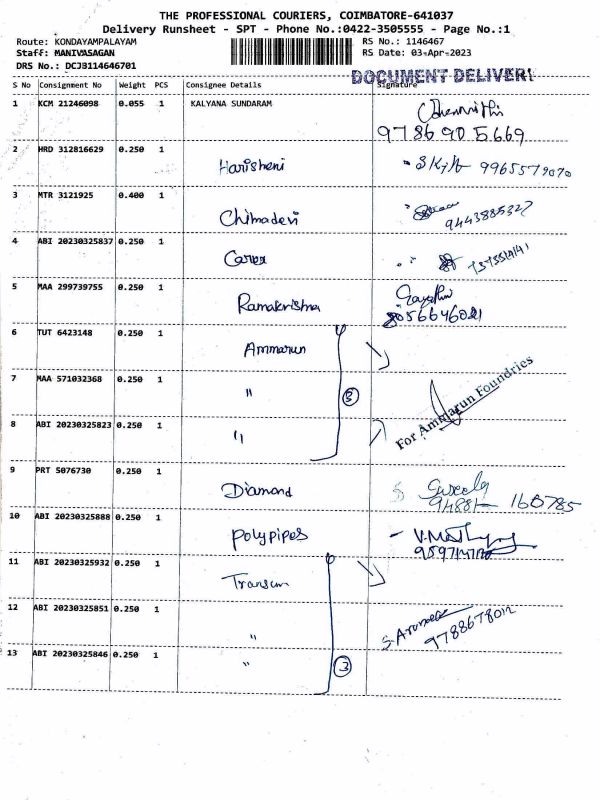 THE PROFESSIONAL COURIERS, COIMBATORE-641037
Delivery Runsheet - SPT - Phone No.:0422-3505555 - Page No.:1
Route: KONDAYAMPALAYAM RS No.: 1146467
Staff: MANIVASAGAN RS Date: 03-Apr-2023
DRS No.: DCJB114646701
DOCUMENT DELIVERY
S No Consignment No Weight PCS Consignee Details Signature
1 KCM 21246098 0.055 1 KALYANA SUNDARAM
9786905669
2 HRD 312816629 0.250 1
Harisheni 9965579070
3 MTR 3121925 0.400 1
Chimadevi 9443885327
4 ABI 20230325837 0.250 1
Carea
5 MAA 299739755 0.250 1 Gayathri
Ramakrishna 8056646021
6 TUT 6423148 0.250 1
Ammarun
7 MAA 571032368 0.250 1
" 3
For Ammarun Foundries
8 ABI 20230325823 0.250 1
"
9 PRT 5076730 0.250 1
Diamond 94881- 160785
10 ABI 20230325888 0.250 1
Polypipes
11 ABI 20230325932 0.250 1
12 ABI 20230325851 0.250 1
" 9788678012
13 ABI 20230325846 0.250 1
" 3